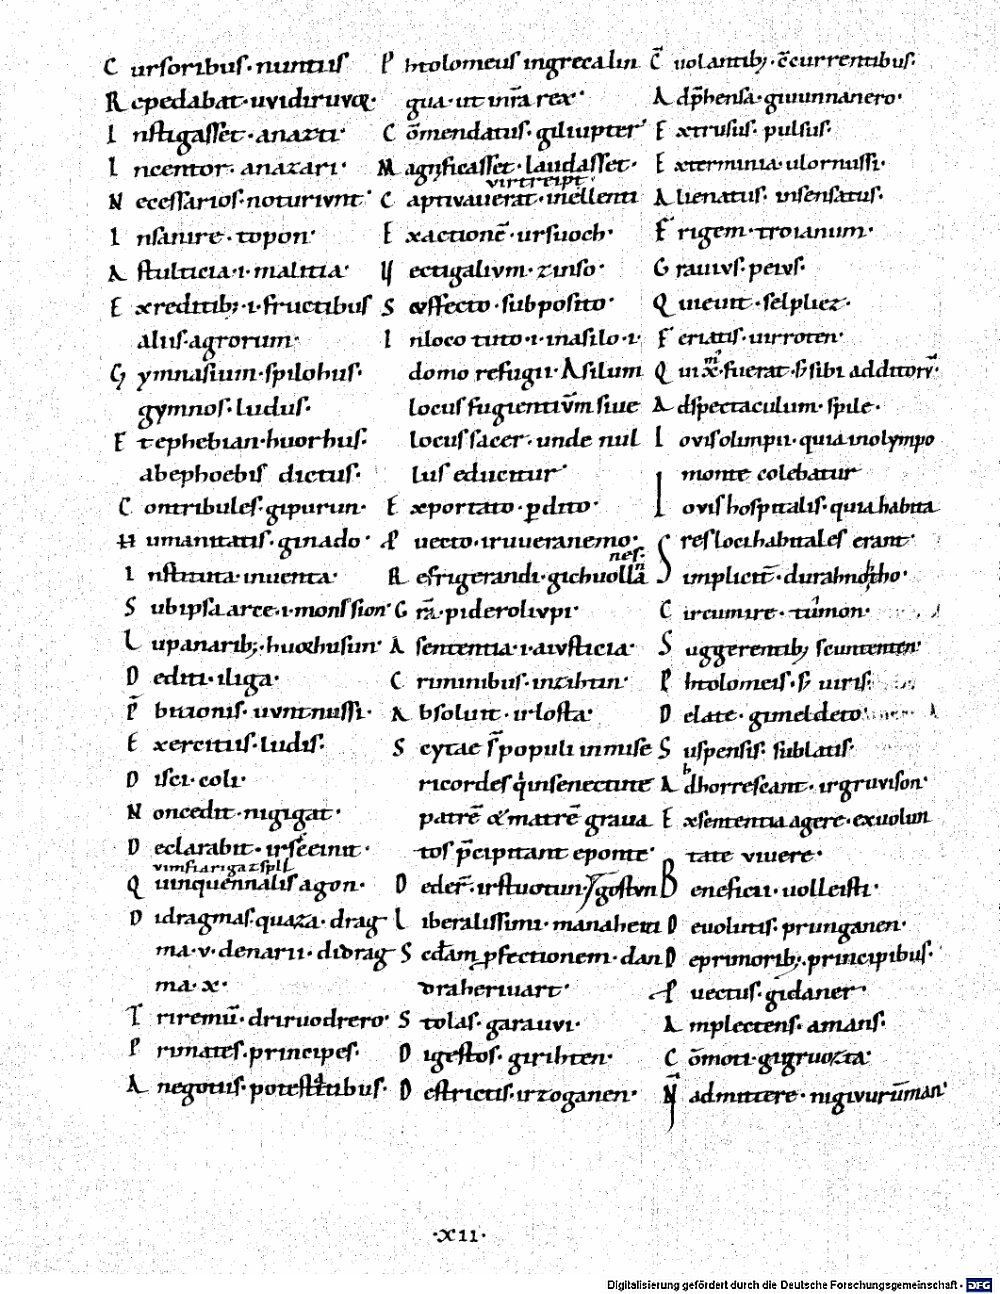 C ursoribus· nuntiis
R epedabat· uvidiruvoꝛ·
I nstigasset· anazti·
I ncentor· anazari·
N ecessarios· noturivnt·
I nsanire· topon·
A stulticia·i·malitia·
E xreditib;·i·fructibus
aliis·agrorum·
G ymnasium·spilohus·
gymnos·ludus·
E t ephebian·huorhus·
abephoebis dictus·
C ontribules·gipurun·
H umanitatis·ginado·
I nstituta·inuenta·
S ub ipsa arce·i·mons sion·
L upanarib;·huorhusun·
D editi·iliga·
P̄ bitionis·uvntnussi·
E xercitiis·ludis·
D isci·coli·
N oncedit·nigigat·
D eclarabit·irsceinit·
vimfiarigazspil
Q uinquennalis agon·
D idragmas·quaza·drag
ma·v·denarii·didrag
ma·x·
T riremū·driruodrero·
P rimates·principes·
A negotiis·potestatibus·
P htolomeus ingreca lin
gua·ut inf̄a rex·
C ōmendatus·giliupter·
M agnificasset·laudasset·
virtreipt·
C aptivauerat·inellenti
E xactionē·ursuoch·
V ectigalivm·zinso·
S uffecto·subposito·
I nloco tuto·i·inasilo·i·
domo refugii·Asilum
locus fugientivm siue
locus sacer·unde nul
lus educitur·
E xportato·ꝑdito·
P uecto·iruueranemo·
nes·
R efrigerandi·gichuollā
G rā·piderolivpi·
A sententia·i·aivsticia·
C riminibus·inzihtin·
A bsoluit·irlosta·
S cytae s̄ populi inmise
ricordes q̄ insenectine
patrē & matrē graua
tos p̄cipitant eponte·
D eder̄·irstuotun·gostvn
L iberalissimi·manaheiti
S edam ꝑfectionem·dan
draheruuart·
S tolas·garauvi·
D igestos·girihten·
D estrictis·irzoganen·
C̄ uolantib;·c̄currentibus·
A dp̄hensa·giuunnanero·
E xtrusus·pulsus·
E xterminia·ulornussi·
A lienatus·insensatus·
F̄ rigem·troianum·
G rauivs·peivs·
Q uieuit·selpliez·
F eriatis·uirroten·
Q ui x̄·fuerat·s̄ sibi additorv̄
A dspectaculum·spile·
I ovis olimpii·quia inolympo
monte colebatur
I ovis hospitalis·quia habita
S res loci habitales erant·
implicit̄·durahno
C ircumire·tūmon·
S uggerentib; scuntenten·
P htolomeis·s̄ uiris·
D elate·gimeldeto
S uspensis·sublatis·
A bhorreseant·irgruvison·
E xsententia agere·exuolun
tate vivere·
B eneficii·uolleisti·
D euolutis·prunganen·
D eprimorib;·principibus·
P uectus·gidaner·
A mplectens·amans·
C ōmoti·gigruozta·
N̄ admittere·nigivurūman·
·XII·
Digitalisierung gefördert durch die Deutsche Forschungsgemeinschaft - DFG